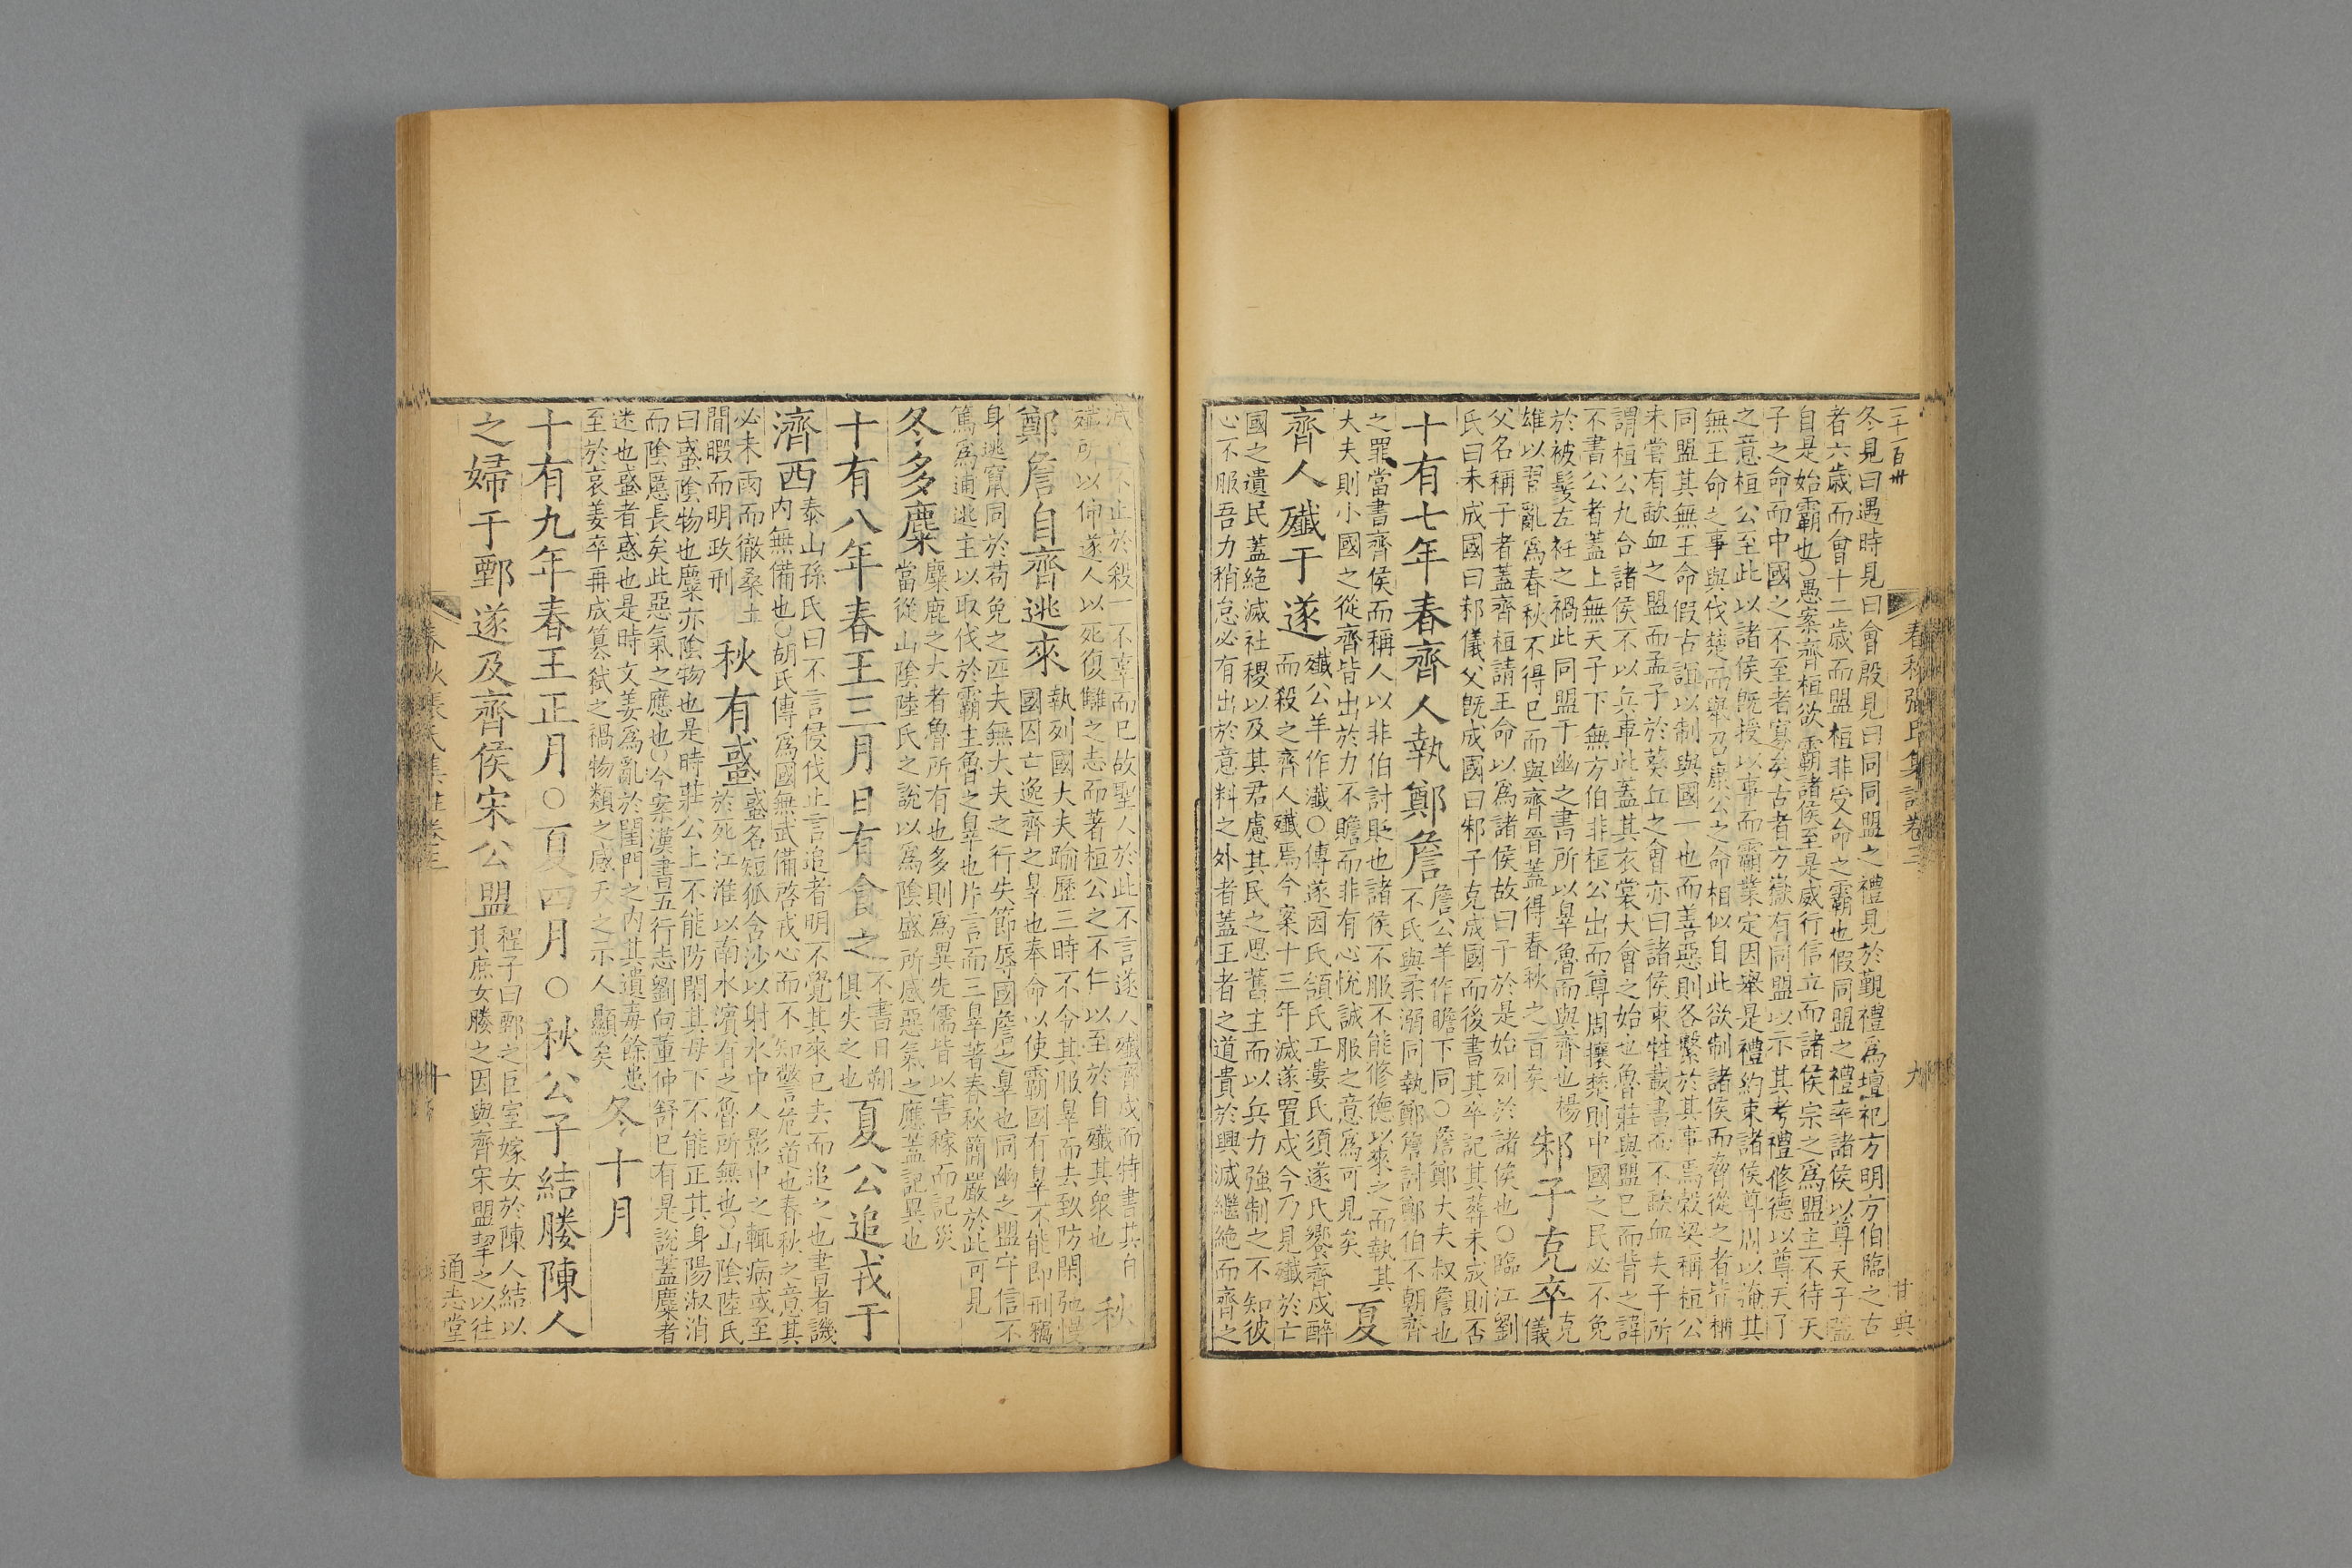 冬見曰遇時見曰會殷見曰同同盟之禮見於覲禮為壇祀方明方伯臨之古
者六歲而會十二歲而盟桓非受命之霸也假同盟之禮率諸侯以尊天子
自是始霸也○愚案齊桓欲霸諸侯至是威行信立而諸侯宗之為盟主不待天
子之命而中國之不至者寡矣古者方嶽有同盟以示其考禮修德以尊天子
之意桓公至此以諸侯既授以事而霸業定因舉是禮約束諸侯尊周以掩其
無王命之事與伐楚而舉召康公之命相似自此欲制諸侯而脅從之者皆稱
同盟其無王命假古誼以制與國一也而善惡則各繫於其事焉穀梁稱桓公
未嘗有歃血之盟而孟子於葵丘之會亦曰諸侯束牲載書而不歃血夫子所
謂桓公九合諸侯不以兵車此蓋其衣裳大會之始也魯莊與盟已而背之諱
不書公者蓋上無天子下無方伯非桓公出而尊周攘楚則中國之民必不免
於被髮左衽之禍此同盟于幽之書所以辠魯而與齊也楊
雄以習亂為春秋不得已而與齊晉蓋得春秋之旨矣
邾子克卒
克儀
父名稱子者蓋齊桓請王命以為諸侯故曰子於是始列於諸侯也○臨江劉
氏曰未成國曰邾儀父既成國曰邾子克成國而後書其卒記其葬未成則否
十有七年春齊人執鄭詹
詹公羊作瞻下同○詹鄭大夫叔詹也
不氏與柔溺同執鄭詹討鄭伯不朝齊
之罪當書齊侯而稱人以非伯討貶也諸侯不服不能修德以來之而執其
大夫則小國之從齊皆出於力不贍而非有心悅誠服之意為可見矣
夏
齊人殲于遂
殲公羊作瀸○傳遂因氏頜氏工婁氏須遂氏饗齊戍醉
而殺之齊人殲焉今案十三年滅遂置戍今乃見殲於亡
國之遺民蓋絕滅社稷以及其君慮其民之思舊主而以兵力強制之不知彼
心不服吾力稍怠必有出於意料之外者蓋王者之道貴於興滅繼絕而齊之
春秋張氏集註卷三
九
不止於殺一不辜而已故聖人於此不言遂人殲齊戍而特書其自
殲所以伸遂人以死復讎之志而著桓公之不仁以至於自殲其衆也
秋
鄭詹自齊逃來
執列國大夫踰歷三時不令其服辠而去致防閑弛慢
國囚亡逸齊之辠也奉命以使霸國有辠不能即刑竊
身逃竄同於苟免之匹夫無大夫之行失節辱國詹之辠也同幽之盟守信不
篤為逋逃主以取伐於霸主魯之辠也片言而三辠著春秋簡嚴於此可見
冬多麋
麋鹿之大者魯所有也多則為異先儒皆以害稼而記災
當從山陰陸氏之說以為陰盛所感惡氣之應蓋記異也
十有八年春王三月日有食之
不書日朔
俱失之也
夏公追戎于
濟西
泰山孫氏曰不言侵伐止言追者明不覺其來已去而追之也書者譏
內無備也○胡氏傳為國無武備啓戎心而不知警危道也春秋之意其
必未雨而徹桑土
閒暇而明政刑
秋有蜮
蜮名短狐含沙以射水中人影中之輒病或至
於死江淮以南水濱有之魯所無也○山陰陸氏
曰蜮陰物也麋亦陰物也是時莊公上不能防閑其母下不能正其身陽淑消
而陰慝長矣此惡氣之應也○今案漢書五行志劉向董仲舒已有是說蓋麋者
迷也蜮者惑也是時文姜為亂於閨門之內其遺毒餘患
至於哀姜卒再成篡弑之禍物類之感天之示人顯矣
冬十月
十有九年春王正月○夏四月○秋公子結媵陳人
之婦于鄄遂及齊侯宋公盟
程子曰鄄之巨室嫁女於陳人結以
其庶女媵之因與齊宋盟挈之以往
通志堂